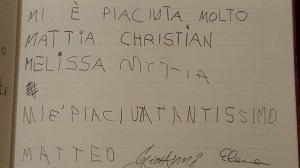 MI È PIACIUTA MOLTO
MATTIA CHRISTIAN
MELISSA MATTIA
MI E' PIACIUTA TANTISSIMO
MATTEO Giovanni Elena